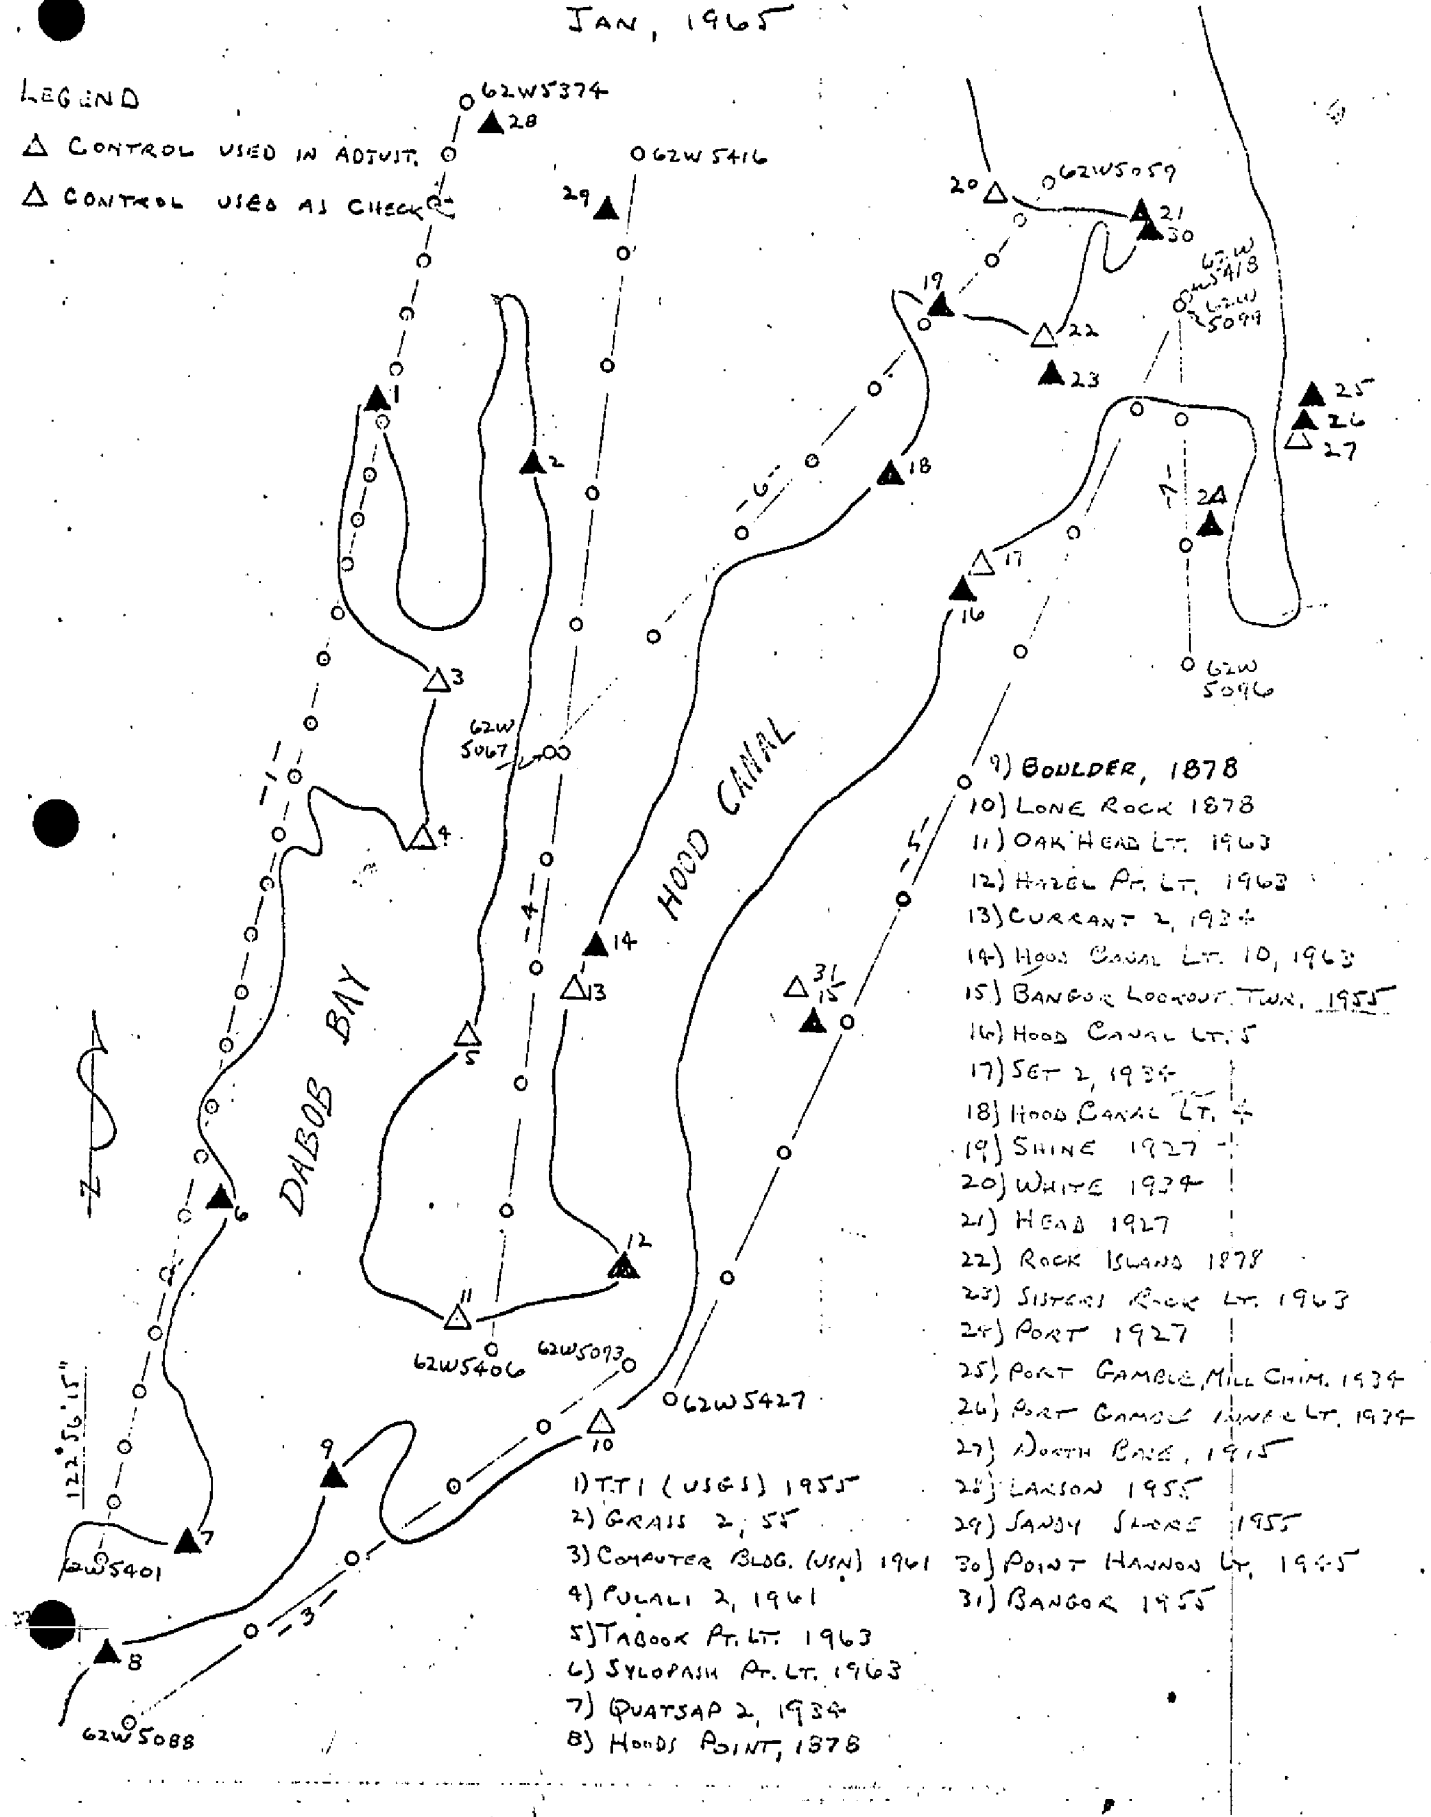 JAN, 1965
LEGEND
△ CONTROL USED IN ADJUST.
△ CONTROL USED AS CHECK
62W5374
28
62W5416
29
20
62W5059
21
30
62W
5418
62W
5099
19
22
23
1
2
18
25
26
27
-6-
-7-
24
17
16
3
62W
5096
62W
5067
-1-
4
HOOD CANAL
-5-
-4-
14
13
31
15
5
DABOB BAY
N
6
12
11
62W5406
62W5093
62W5427
10
122°56'15"
9
7
62W5401
8
-3-
62W5088
1) TT1 (USGS) 1955
2) GRASS 2, 55
3) COMPUTER BLDG. (USN) 1961
4) PULALI 2, 1961
5) TABOOK PT. LT. 1963
6) SYLOPASH PT. LT. 1963
7) QUATSAP 2, 1934
8) HOODS POINT, 1878
9) BOULDER, 1878
10) LONE ROCK 1878
11) OAK HEAD LT. 1963
12) HAZEL PT. LT. 1963
13) CURRANT 2, 1934
14) HOOD CANAL LT. 10, 1963
15) BANGOR LOOKOUT TWR. 1955
16) HOOD CANAL LT. 5
17) SET 2, 1934
18) HOOD CANAL LT. 4
19) SHINE 1927
20) WHITE 1934
21) HEAD 1927
22) ROCK ISLAND 1878
23) SISTERS ROCK LT. 1963
24) PORT 1927
25) PORT GAMBLE, MILL CHIM. 1934
26) PORT GAMBLE INNER LT. 1934
27) NORTH BASE, 1915
28) LARSON 1955
29) SANDY SHORE 1955
30) POINT HANNON LT. 1945
31) BANGOR 1955